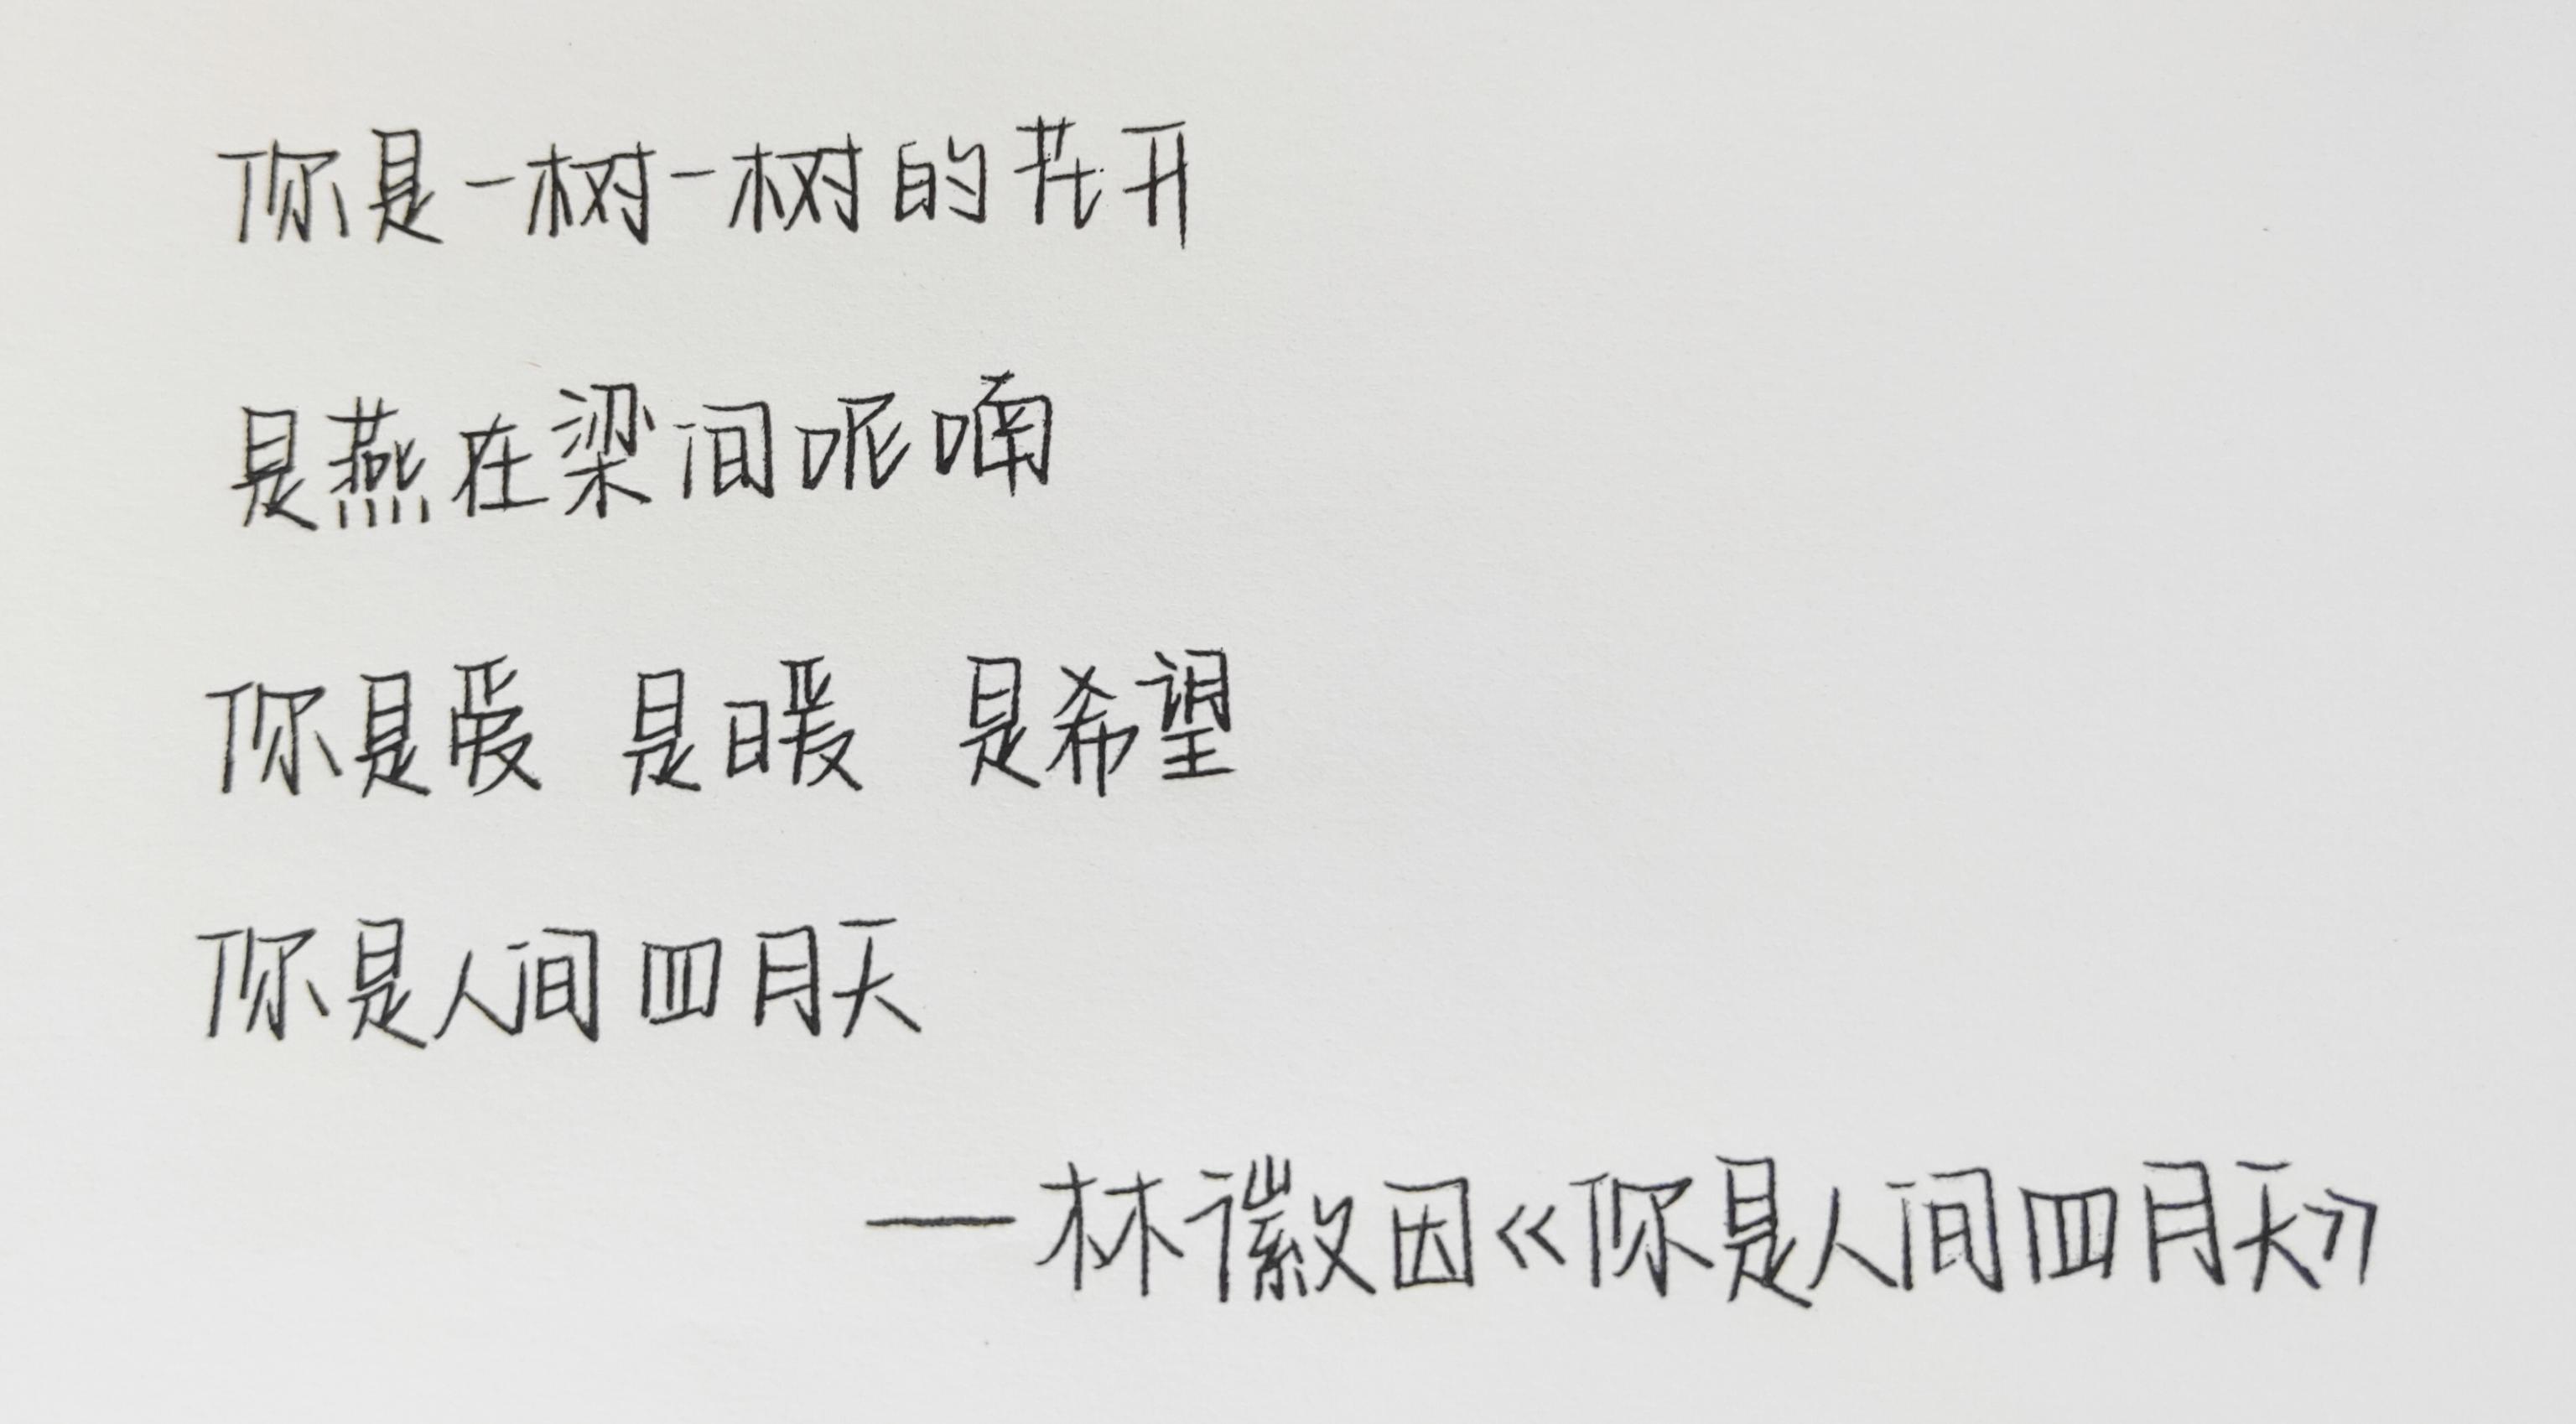 你是一树一树的花开
是燕在梁间呢喃
你是爱 是暖 是希望
你是人间四月天
——林徽因《你是人间四月天》